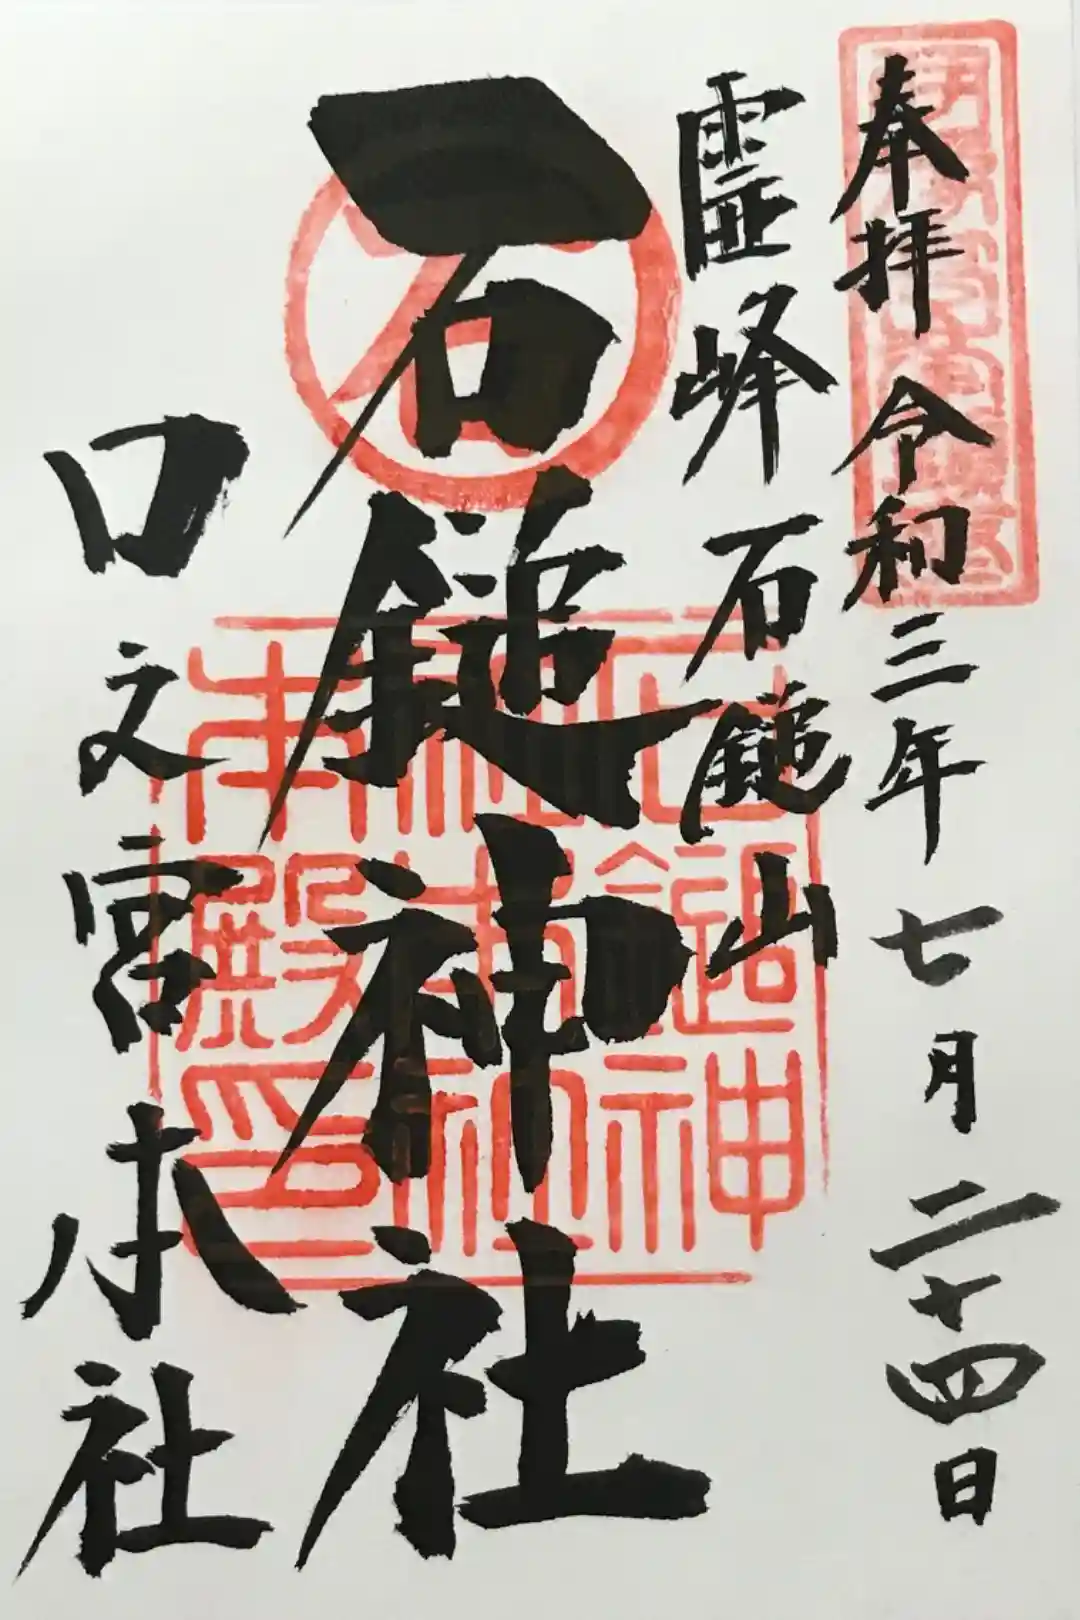 奉拝 令和三年七月二十四日
霊峰 石鎚山
石鎚神社
口之宮本社
石鎚神社本社本殿印